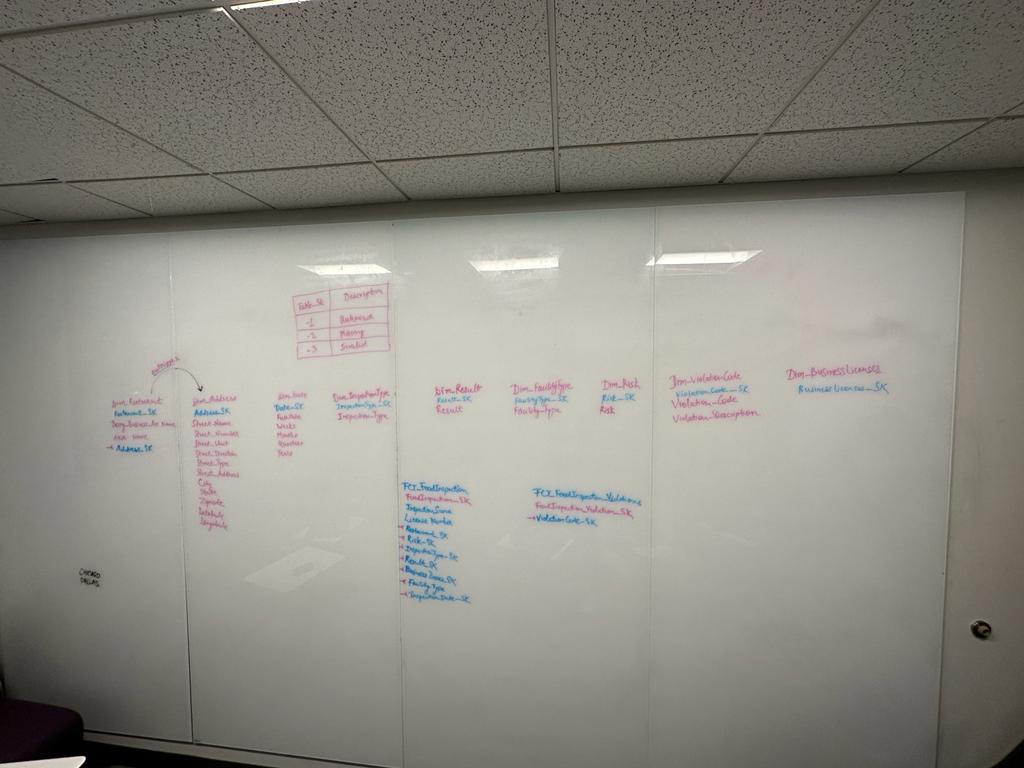 Table_SK Description
-1 Unknown
-2 Missing
-3 Invalid
outrigger
Dim_Restaurant
Restaurant_SK
Doing_Business_As Name
AKA Name
Address_SK
Dim_Address
Address_SK
Street_Name
Street_Number
Street_Unit
Street_Direction
Street_Type
Street_Address
City
State
Zipcode
Latitude
Longitude
Dim_Date
Date_SK
Weeks
Months
Quarters
Years
Dim_InspectionType
InspectionType_SK
Inspection_Type
Dim_Result
Result_SK
Result
Dim_FacilityType
FacilityType_SK
Facility_Type
Dim_Risk
Risk_SK
Risk
Dim_ViolationCode
ViolationCode_SK
Violation_Code
Violation_Description
Dim_BusinessLicenses
BusinessLicenses_SK
FCT_FoodInspection
FoodInspection_SK
License Number
Restaurant_SK
Risk_SK
InspectionType_SK
Result_SK
BusinessLicense_SK
Facility_Type
InspectionDate_SK
FCT_FoodInspection_Violations
FoodInspection_Violation_SK
ViolationCode_SK
CHICAGO
DALLAS